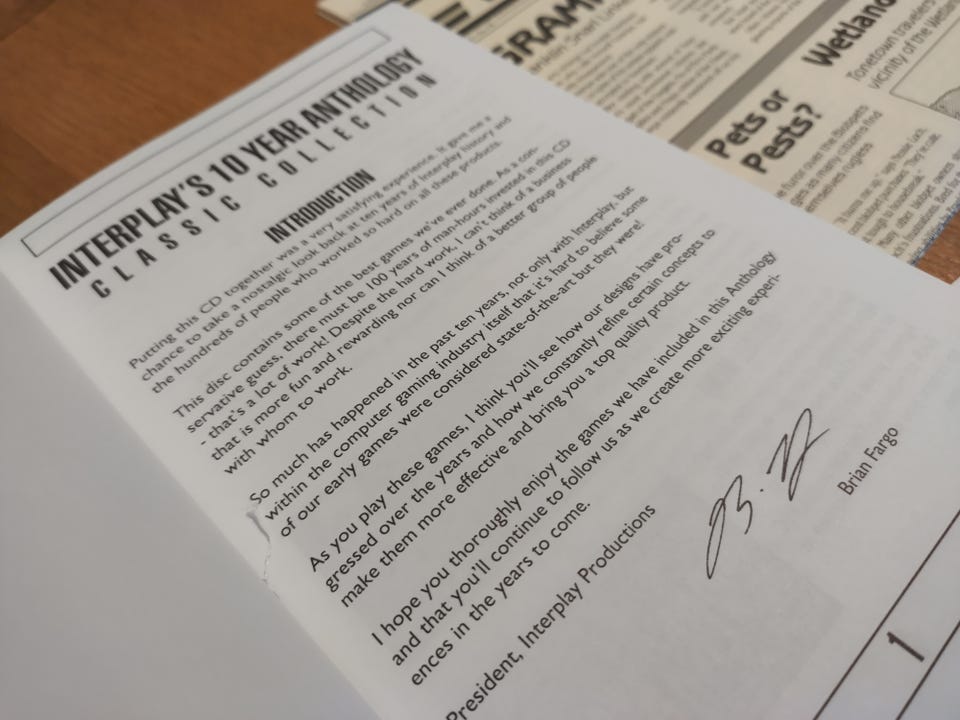 INTERPLAY'S 10 YEAR ANTHOLOGY
CLASSIC COLLECTION
INTRODUCTION
Putting this CD together was a very satisfying experience. It gave me a
chance to take a nostalgic look back at ten years of Interplay history and
the hundreds of people who worked so hard on all these products.
This disc contains some of the best games we've ever done. As a con-
servative guess, there must be 100 years of man-hours invested in this CD
- that's a lot of work! Despite the hard work, I can't think of a business
that is more fun and rewarding nor can I think of a better group of people
with whom to work.
So much has happened in the past ten years, not only with Interplay, but
within the computer gaming industry itself that it's hard to believe some
of our early games were considered state-of-the-art but they were!
As you play these games, I think you'll see how our designs have pro-
gressed over the years and how we constantly refine certain concepts to
make them more effective and bring you a top quality product.
I hope you thoroughly enjoy the games we have included in this Anthology
and that you'll continue to follow us as we create more exciting experi-
ences in the years to come.
Brian Fargo
President, Interplay Productions
1
Wetland
Tonetown travelers
vicinity of the Wetlan
Pets or
Pests?